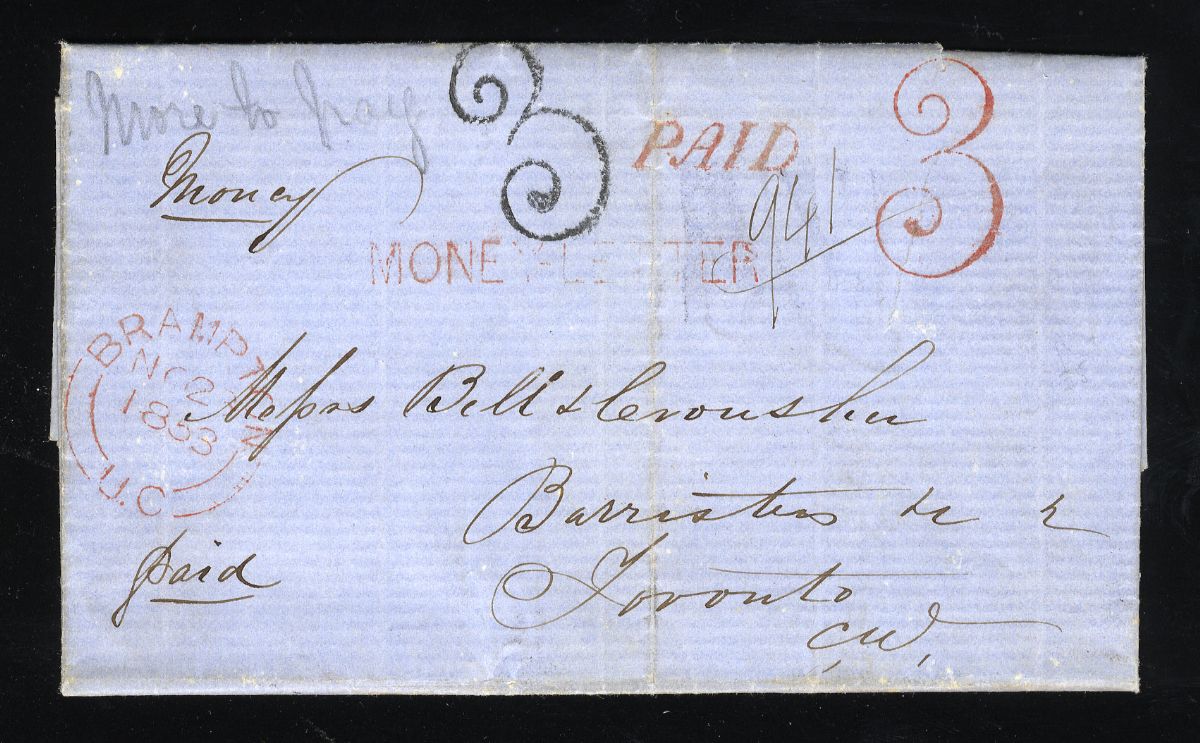 More to pay
3 PAID 3
Money
941
MONEY-LETTER
BRAMPTON
NO 2
1853
U.C
Messrs Bell & Crowther
Barristers &c &
Toronto
C.W.
paid